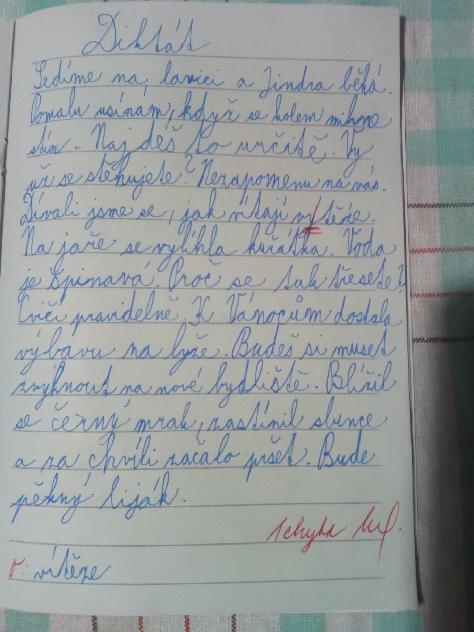 Diktát
Sedíme na lavici a Jindra běhá.
Pomalu usínám, když se kolem mihne
stín. Najdeš to určitě. Vy
už se stěhujete? Nezapomenu na vás.
Dívali jsme se, jak vítají výtěze.
Na jaře se vylíhla kuřátka. Voda
je špinavá. Proč se tak třesete?
Cvičí pravidelně. K Vánocům dostala
výbavu na lyže. Budeš si muset
zvyknout na nové bydliště. Blížil
se černý mrak, zastínil slunce
a za chvíli začalo pršet. Bude
pěkný liják.
1 chyba
o: vítěze